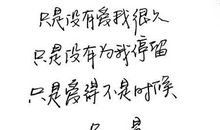 只是没有爱我很久
只是没有为我停留
只是爱得不是时候